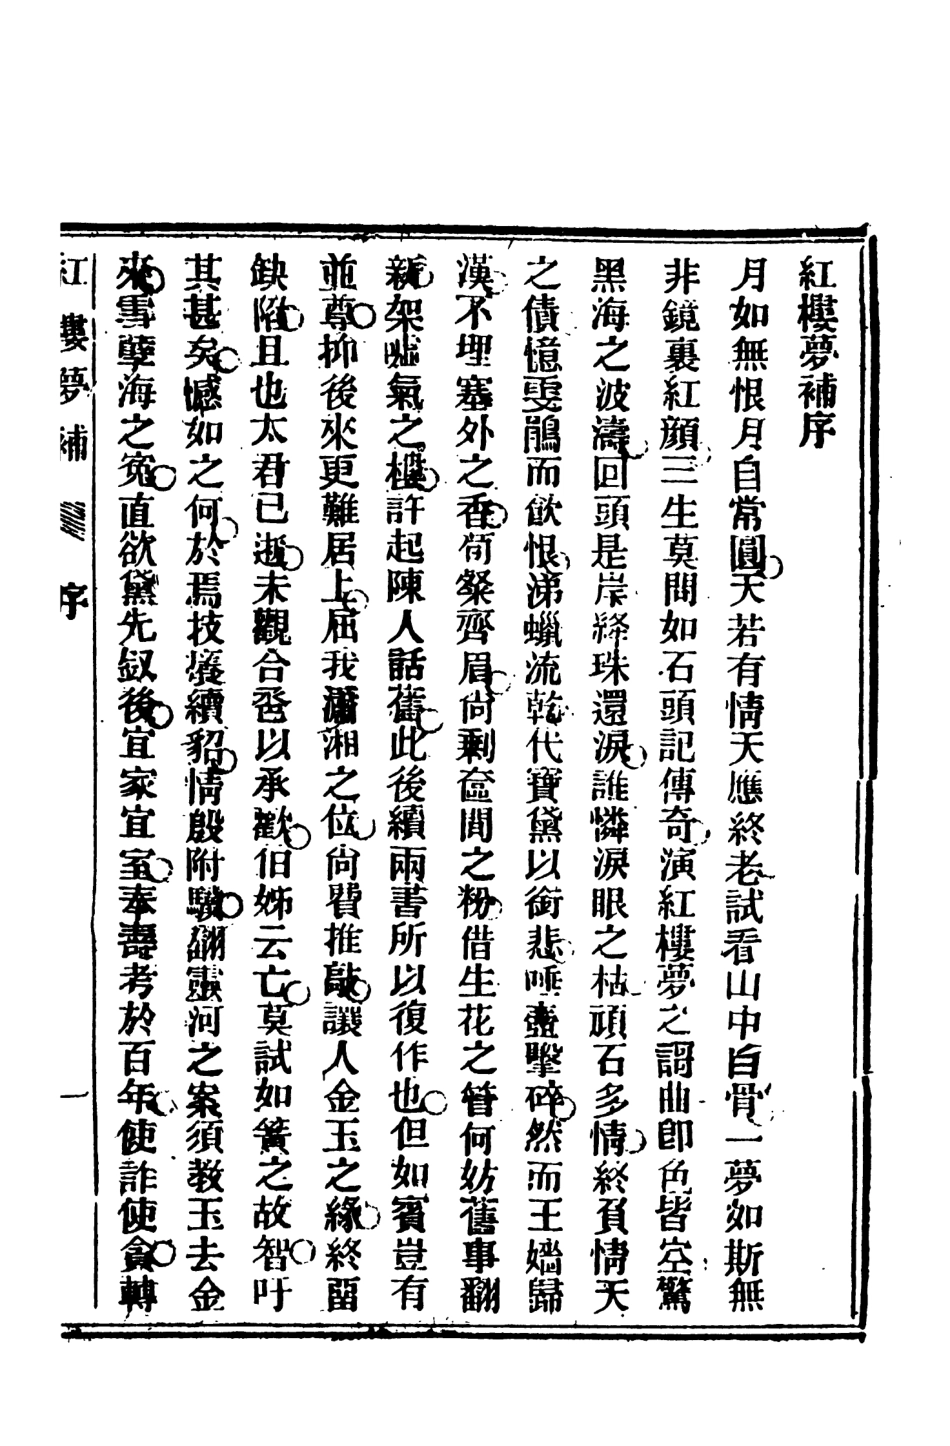 紅樓夢補序
月如無恨月自常圓天若有情天應終老試看山中白骨一夢如斯無
非鏡裏紅顔三生莫問如石頭記傳奇演紅樓夢之詞曲即色皆空驚
黑海之波濤回頭是岸絳珠還淚誰憐淚眼之枯頑石多情終負情天
之債憶雯鵑而飲恨涕蠟流乾代寶黛以銜悲唾壺擊碎然而王嬙歸
漢不埋塞外之香荀粲齊眉尙剩奩間之粉借生花之管何妨舊事翻
新架噓氣之樓許起陳人話舊此後續兩書所以復作也但如賓豈有
並尊抑後來更難居上屈我瀟湘之位尙費推敲讓人金玉之緣終留
缺陷且也太君已逝未觀合卺以承歡伯姊云亡莫試如簧之故智吁
其甚矣憾如之何於焉技癢續貂情殷附驥翻靈河之案須教玉去金
來雪孽海之寃直欲黛先釵後宜家宜室奉壽考於百年使詐使貪轉
紅樓夢補 序 一